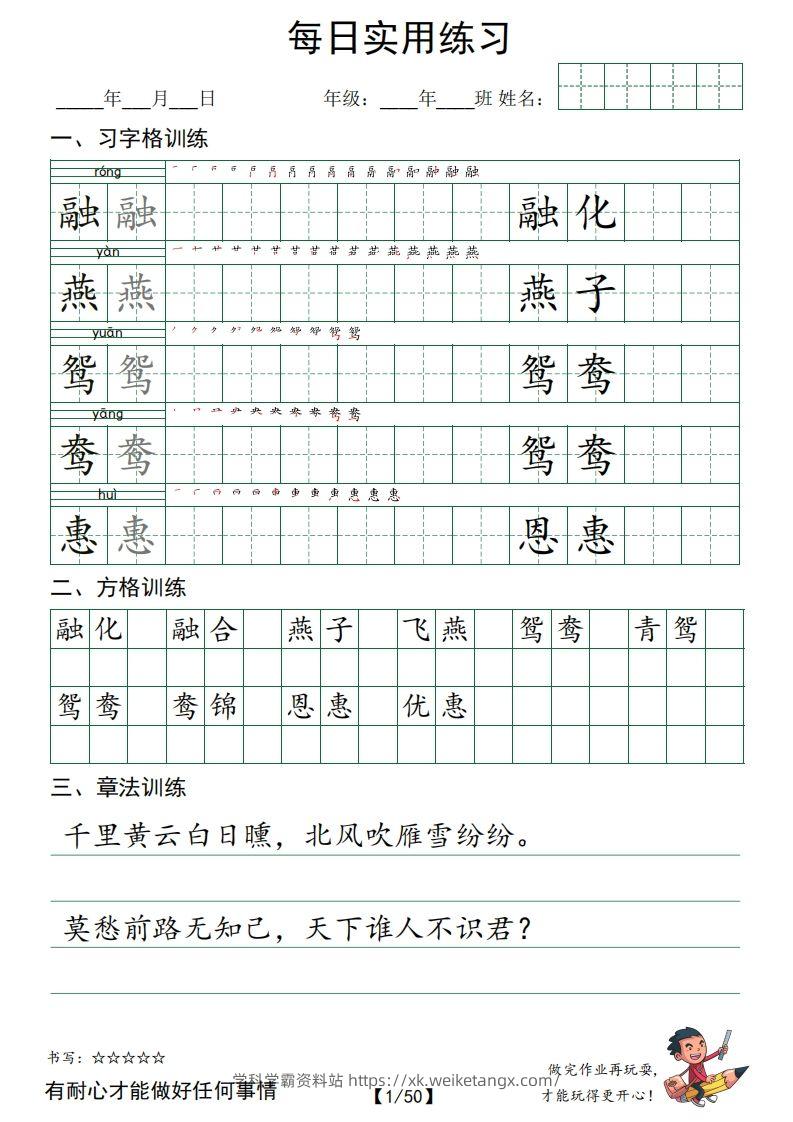 每日实用练习
_____年___月___日 年级：____年____班 姓名：
一、习字格训练
róng
融 融 融 化
yàn
燕 燕 燕 子
yuān
鸳 鸳 鸳 鸯
yāng
鸯 鸯 鸳 鸯
huì
惠 惠 恩 惠
二、方格训练
融 化 融 合 燕 子 飞 燕 鸳 鸯 青 鸳
鸳 鸯 鸯 锦 恩 惠 优 惠
三、章法训练
千里黄云白日曛，北风吹雁雪纷纷。
莫愁前路无知己，天下谁人不识君？
书写：☆☆☆☆☆
有耐心才能做好任何事情
学科学霸资料站 https://xk.weiketangx.com/
【1/50】
做完作业再玩耍，
才能玩得更开心！